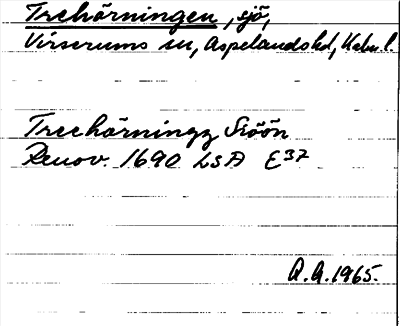 Trehörningen, sjö,
Virserums sn, Aspelands hd, Kalm. l.
Treehörningz Siöön
Renov. 1690 LSA E37
A.A. 1965.